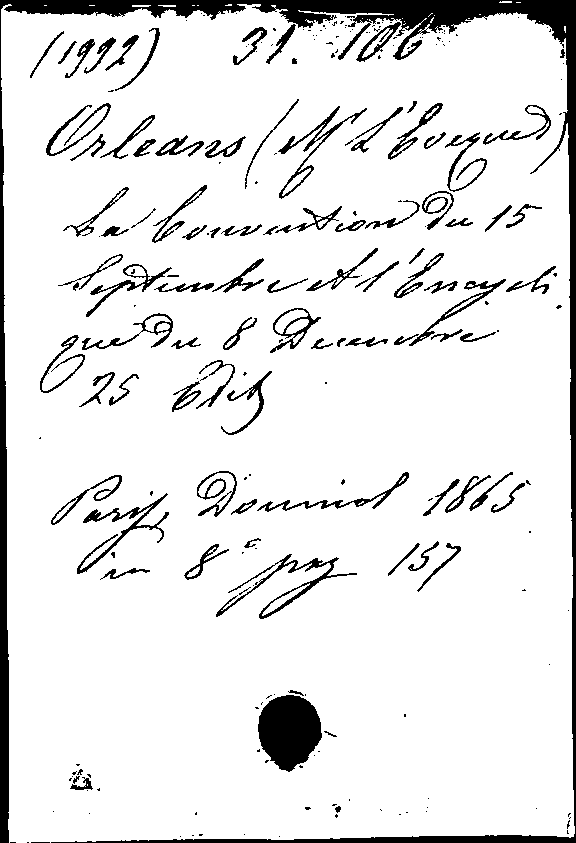 (1992) 31. 106
Orleans (Mr L'Evequed)
La Convention du 15
Septembre et l'Encycli
que du 8 Decembre
25 Edit
Paris, Douniol 1865
in 8° pag 157